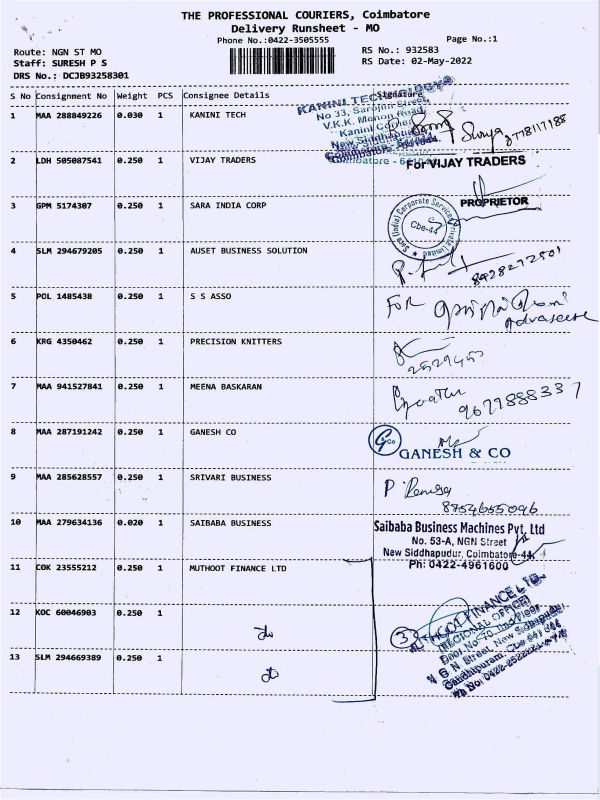 THE PROFESSIONAL COURIERS, Coimbatore
Delivery Runsheet - MO
Phone No.:0422-3505555
Page No.:1
Route: NGN ST MO
RS No.: 932583
Staff: SURESH P S
RS Date: 02-May-2022
DRS No.: DCJB93258301
S No Consignment No Weight PCS Consignee Details Signature
1 MAA 288849226 0.030 1 KANINI TECH
KANINI TECHNOLOGY
No 33, Sarojini Street,
V.K.K. Menon Road,
Kanini Corner
New Siddhapudur
Coimbatore - 641044
2 LDH 505087541 0.250 1 VIJAY TRADERS
For VIJAY TRADERS
PROPRIETOR
3 GPM 5174307 0.250 1 SARA INDIA CORP
Sara (India) Corporate Services Private Limited
Cbe-44
4 SLM 294679205 0.250 1 AUSET BUSINESS SOLUTION
8928272501
5 POL 1485438 0.250 1 S S ASSO
FOR
6 KRG 4350462 0.250 1 PRECISION KNITTERS
7 MAA 941527841 0.250 1 MEENA BASKARAN
9677888337
8 MAA 287191242 0.250 1 GANESH CO
GANESH & CO
PROPRIETOR
9 MAA 285628557 0.250 1 SRIVARI BUSINESS
8754655096
10 MAA 279634136 0.020 1 SAIBABA BUSINESS
Saibaba Business Machines Pvt. Ltd
No. 53-A, NGN Street
New Siddhapudur, Coimbatore-44.
Ph: 0422-4961600
11 COK 23555212 0.250 1 MUTHOOT FINANCE LTD
12 KOC 60046903 0.250 1 do
13 SLM 294669389 0.250 1 do
3
MUTHOOT FINANCE LTD.
REGIONAL OFFICE
Door No-70, IInd Floor
N G N Street, New Sidhapudur
Gandhipuram, Cbe 641 044